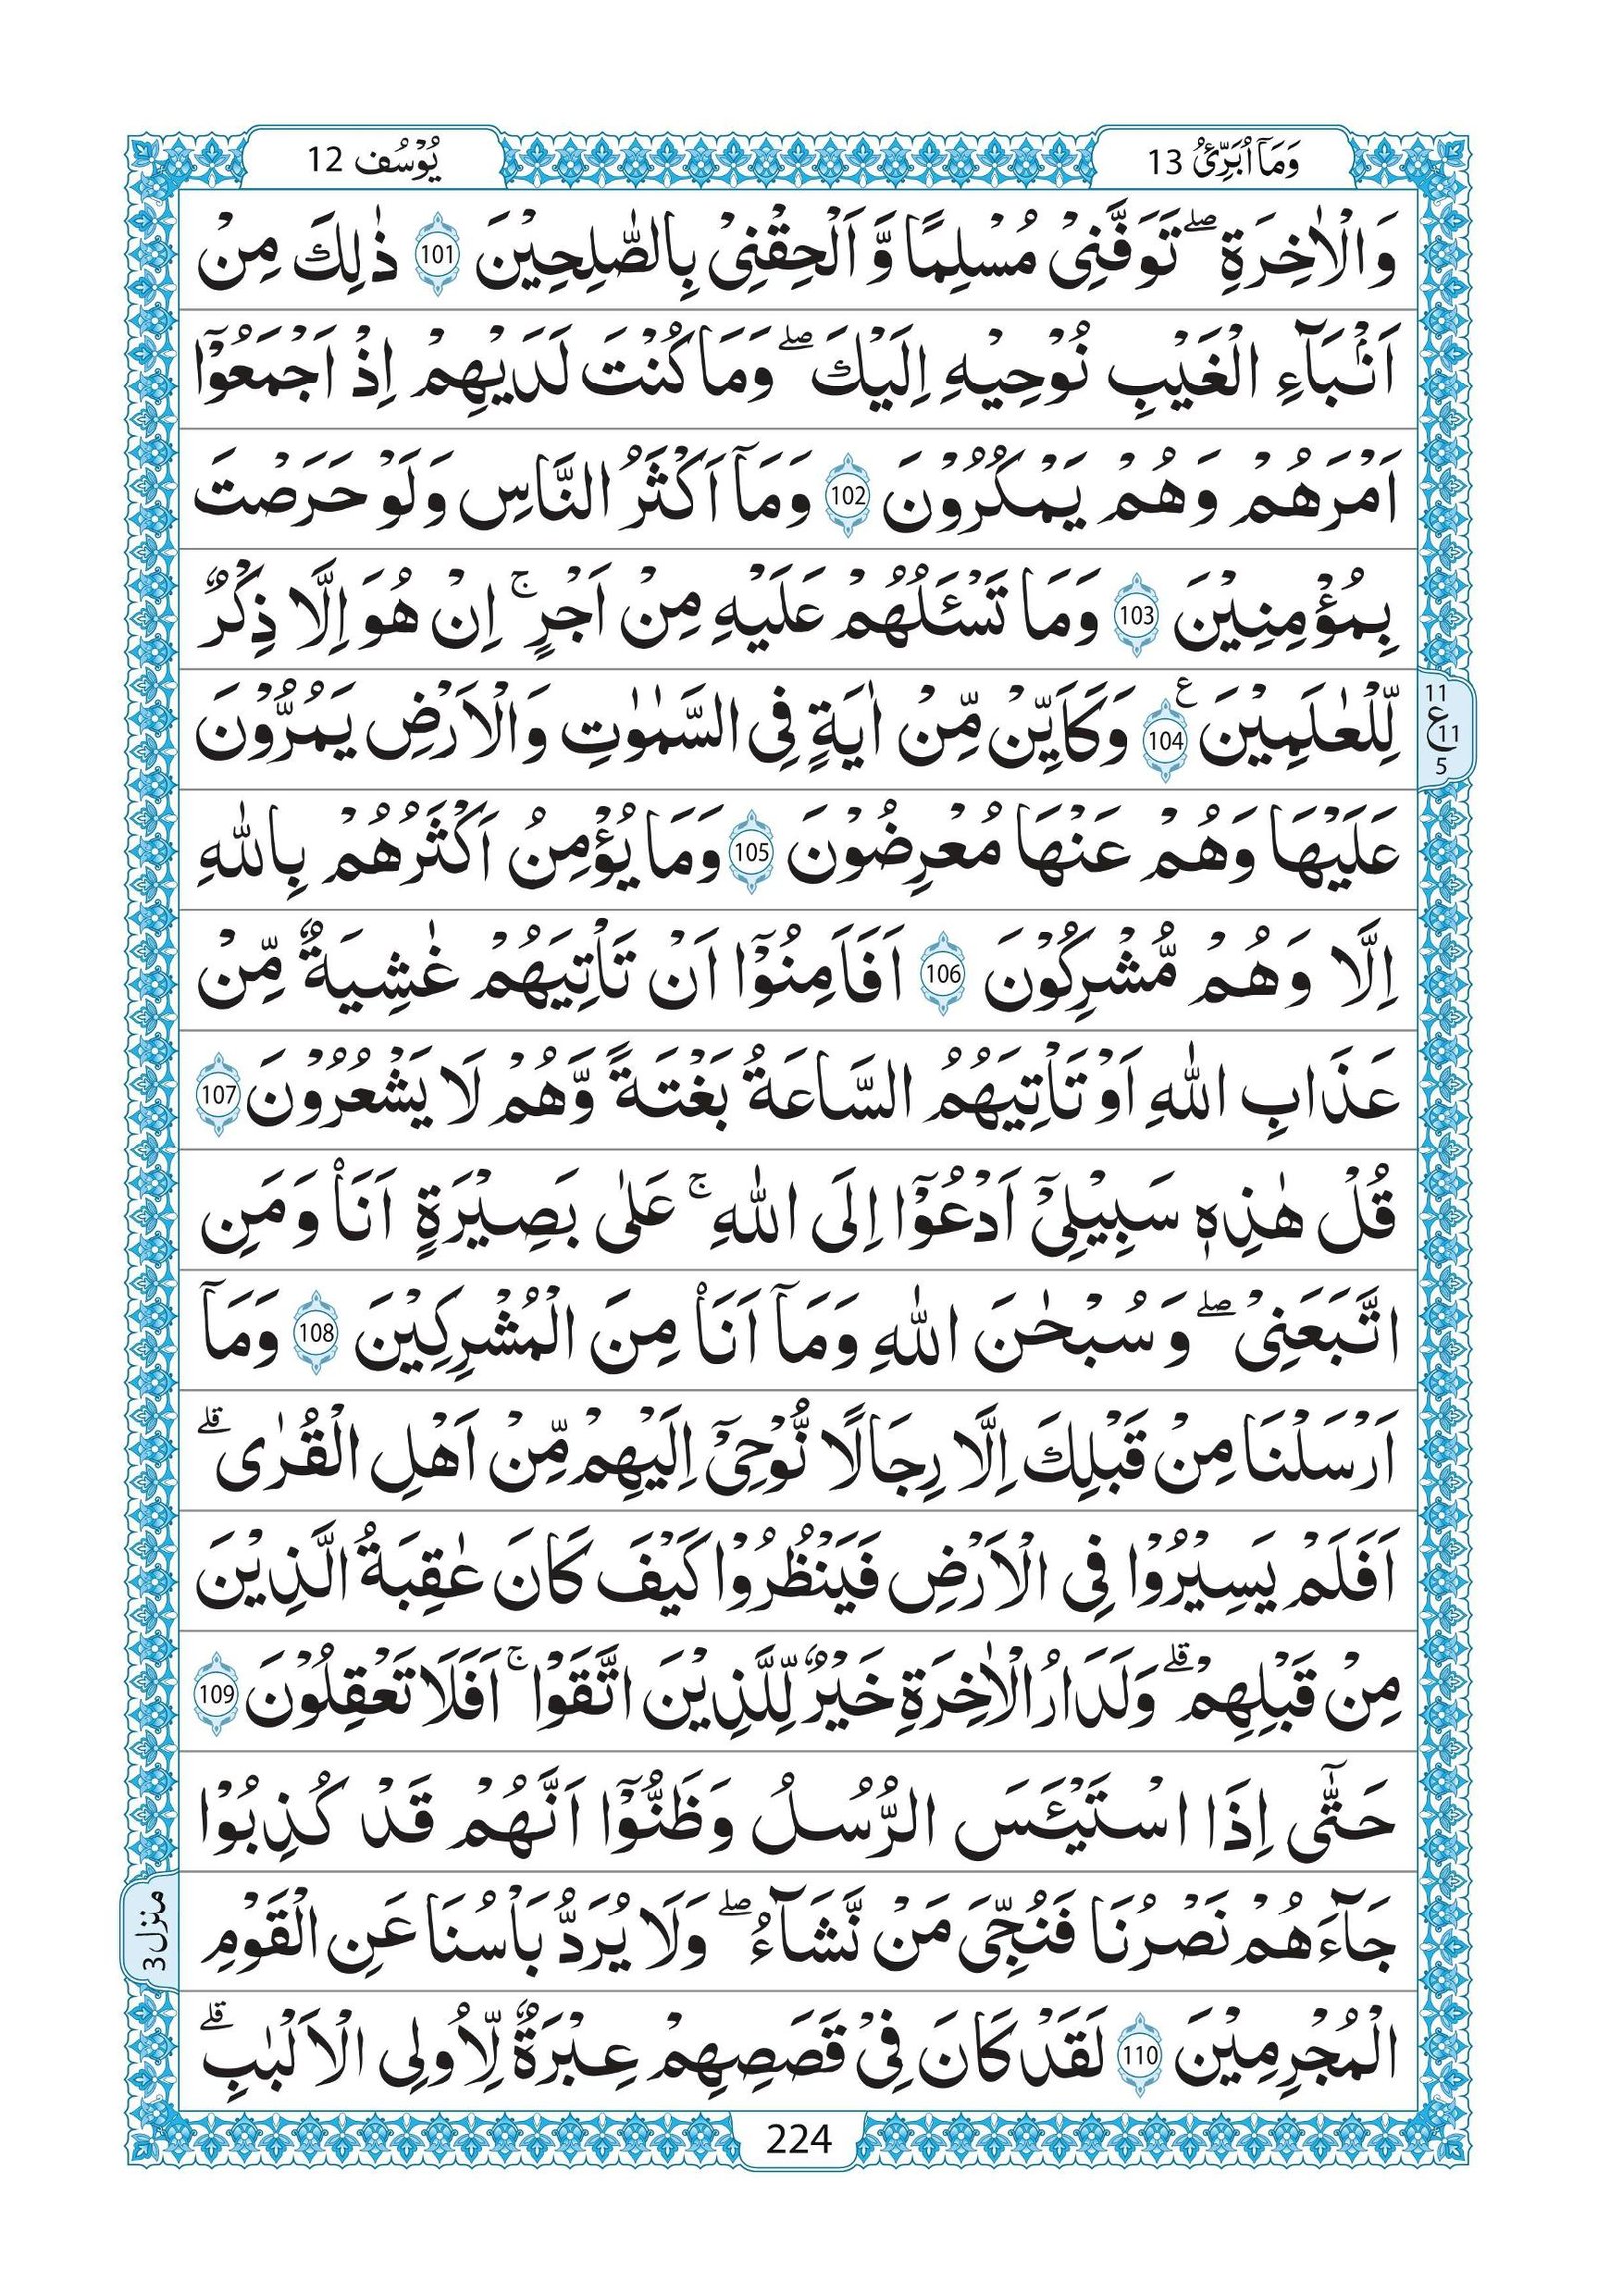 وَمَاۤ اُبَرِّئُ 13
يُوْسُف 12
وَالْاٰخِرَةِ ۖ تَوَفَّنِىْ مُسْلِمًا وَّ اَلْحِقْنِىْ بِالصّٰلِحِيْنَ 101 ذٰلِكَ مِنْ
اَنْۢبَآءِ الْغَيْبِ نُوْحِيْهِ اِلَيْكَ ۖ وَمَا كُنْتَ لَدَيْهِمْ اِذْ اَجْمَعُوْۤا
اَمْرَهُمْ وَهُمْ يَمْكُرُوْنَ 102 وَمَاۤ اَكْثَرُ النَّاسِ وَلَوْ حَرَصْتَ
بِمُؤْمِنِيْنَ 103 وَمَا تَسْـَٔلُهُمْ عَلَيْهِ مِنْ اَجْرٍ ۚ اِنْ هُوَ اِلَّا ذِكْرٌ
لِّلْعٰلَمِيْنَ 104 ع وَكَاَيِّنْ مِّنْ اٰيَةٍ فِى السَّمٰوٰتِ وَالْاَرْضِ يَمُرُّوْنَ
11 ع 11 5
عَلَيْهَا وَهُمْ عَنْهَا مُعْرِضُوْنَ 105 وَمَا يُؤْمِنُ اَكْثَرُهُمْ بِاللّٰهِ
اِلَّا وَهُمْ مُّشْرِكُوْنَ 106 اَفَاَمِنُوْۤا اَنْ تَاْتِيَهُمْ غٰشِيَةٌ مِّنْ
عَذَابِ اللّٰهِ اَوْ تَاْتِيَهُمُ السَّاعَةُ بَغْتَةً وَّهُمْ لَا يَشْعُرُوْنَ 107
قُلْ هٰذِهٖ سَبِيْلِىْۤ اَدْعُوْۤا اِلَى اللّٰهِ ۚ عَلٰى بَصِيْرَةٍ اَنَا۟ وَمَنِ
اتَّبَعَنِىْ ۖ وَسُبْحٰنَ اللّٰهِ وَمَاۤ اَنَا۟ مِنَ الْمُشْرِكِيْنَ 108 وَمَاۤ
اَرْسَلْنَا مِنْ قَبْلِكَ اِلَّا رِجَالًا نُّوْحِىْۤ اِلَيْهِمْ مِّنْ اَهْلِ الْقُرٰى ۗ
اَفَلَمْ يَسِيْرُوْا فِى الْاَرْضِ فَيَنْظُرُوْا كَيْفَ كَانَ عٰقِبَةُ الَّذِيْنَ
مِنْ قَبْلِهِمْ ۗ وَلَدَارُ الْاٰخِرَةِ خَيْرٌ لِّلَّذِيْنَ اتَّقَوْا ۚ اَفَلَا تَعْقِلُوْنَ 109
حَتّٰۤى اِذَا اسْتَيْـَٔسَ الرُّسُلُ وَظَنُّوْۤا اَنَّهُمْ قَدْ كُذِبُوْا
جَآءَهُمْ نَصْرُنَا فَنُجِّىَ مَنْ نَّشَآءُ ۖ وَلَا يُرَدُّ بَاْسُنَا عَنِ الْقَوْمِ
منزل 3
الْمُجْرِمِيْنَ 110 لَقَدْ كَانَ فِىْ قَصَصِهِمْ عِبْرَةٌ لِّاُولِى الْاَلْبٰبِ ۗ
224